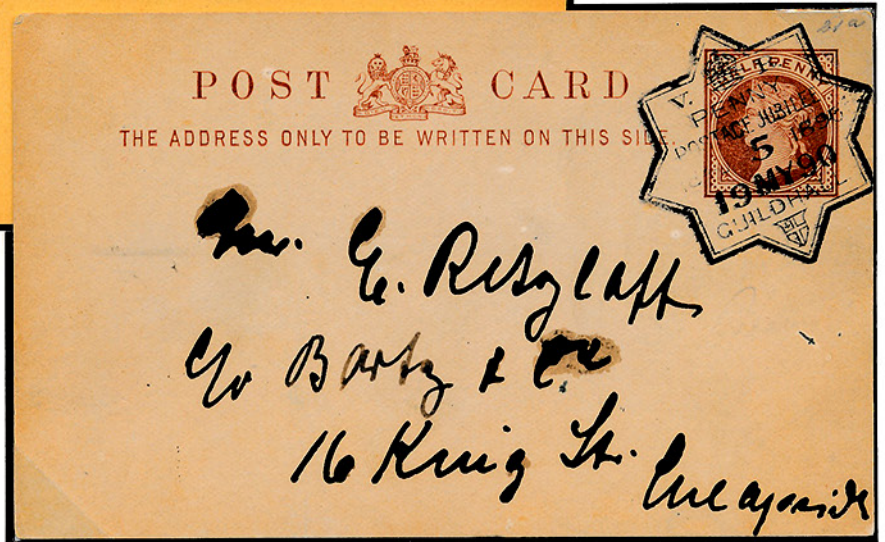 21a
POST CARD
THE ADDRESS ONLY TO BE WRITTEN ON THIS SIDE.
HALFPENNY
V. R.
PENNY
POSTAGE JUBILEE
5
19MY90
GUILDHALL
Mr. E. Retzlaff
c/o Bartz & Co
16 King St.
Cheapside